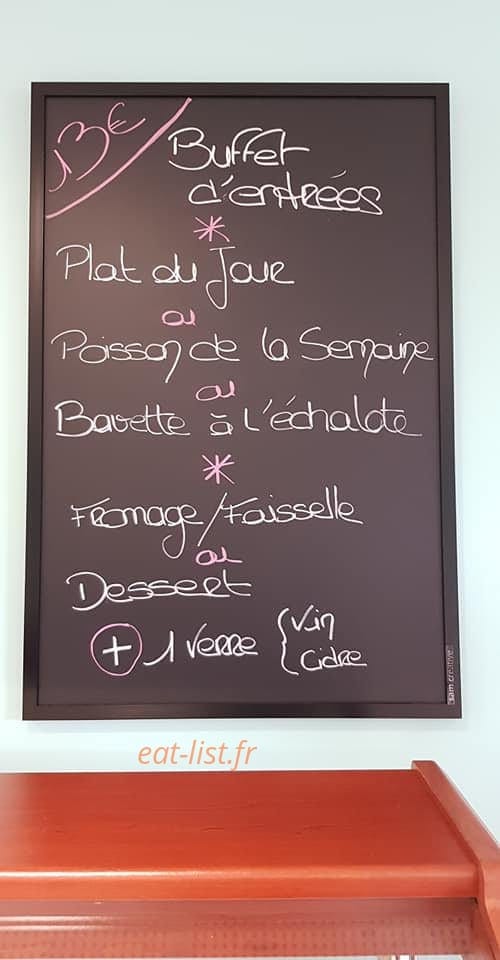 13€
Buffet
d'entrées
*
Plat du Jour
ou
Poisson de la Semaine
ou
Bavette à L'échalote
*
Fromage/Faisselle
ou
Dessert
+ 1 Verre { Vin
Cidre
sam creative
eat-list.fr